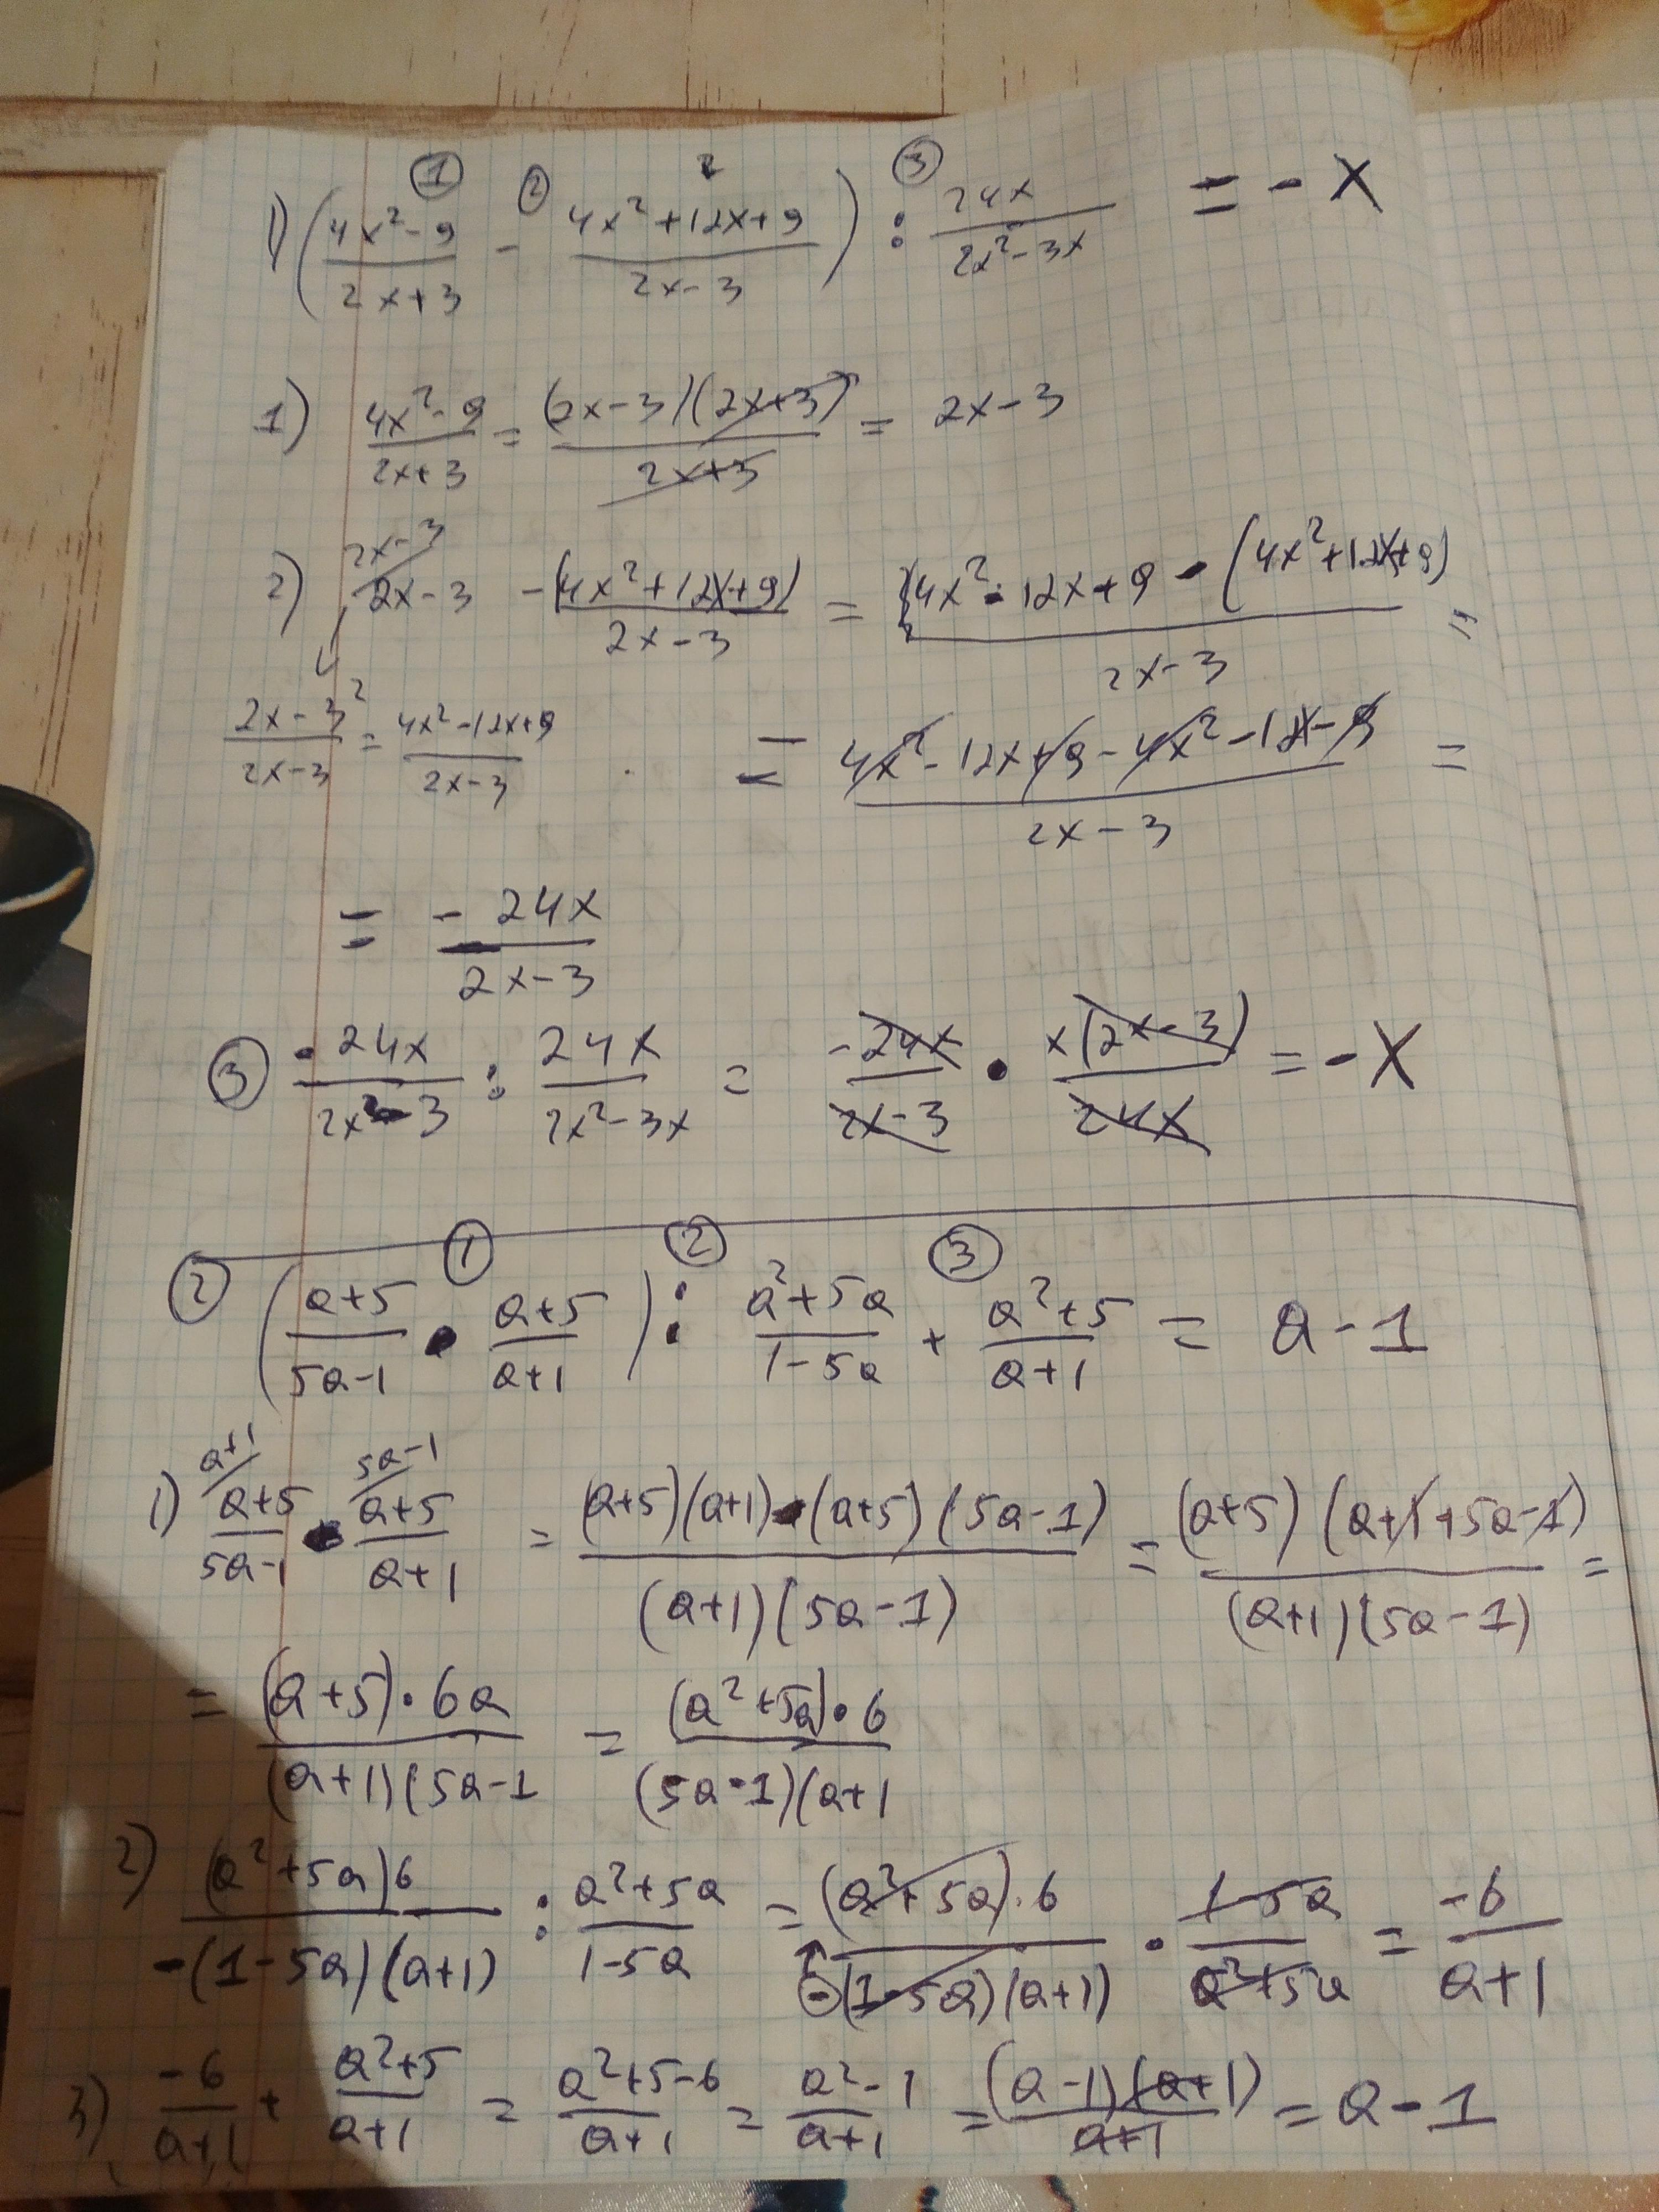 ① ② 2 ③
1) ((4x²-9)/(2x+3) - (4x²+12x+9)/(2x-3)) : 24x/(2x²-3x) = -x
1) (4x²-9)/(2x+3) = (2x-3)(2x+3)/(2x+3) = 2x-3
2) 2x-3/ 2x-3 -(4x²+12x+9)/(2x-3) = (4x²-12x+9-(4x²+12x+9))/(2x-3) =
2x-3²/(2x-3) = (4x²-12x+9)/(2x-3) = (4x²-12x+9-4x²-12x-9)/(2x-3) =
= -24x/(2x-3)
③ -24x/(2x-3) : 24x/(2x²-3x) = -24x/(2x-3) • x(2x-3)/24x = -x
① ② ③
② ((a+5)/(5a-1) • (a+5)/(a+1)) : (a²+5a)/(1-5a) + (a²+5)/(a+1) = a-1
1) a+1/ (a+5)/(5a-1) • 5a-1/ (a+5)/(a+1) = ((a+5)(a+1)•(a+5)(5a-1))/((a+1)(5a-1)) = (a+5)(a+1+5a-1)/((a+1)(5a-1)) =
= (a+5)·6a/((a+1)(5a-1 = (a²+5a)·6/((5a-1)(a+1
2) (a²+5a)6/(-(1-5a)(a+1)) : (a²+5a)/(1-5a) = (a²+5a)·6/(-(1-5a)(a+1)) · (1-5a)/(a²+5a) = -6/(a+1)
3) -6/(a+1) + (a²+5)/(a+1) = (a²+5-6)/(a+1) = (a²-1)/(a+1) = (a-1)(a+1)/(a+1) = a-1